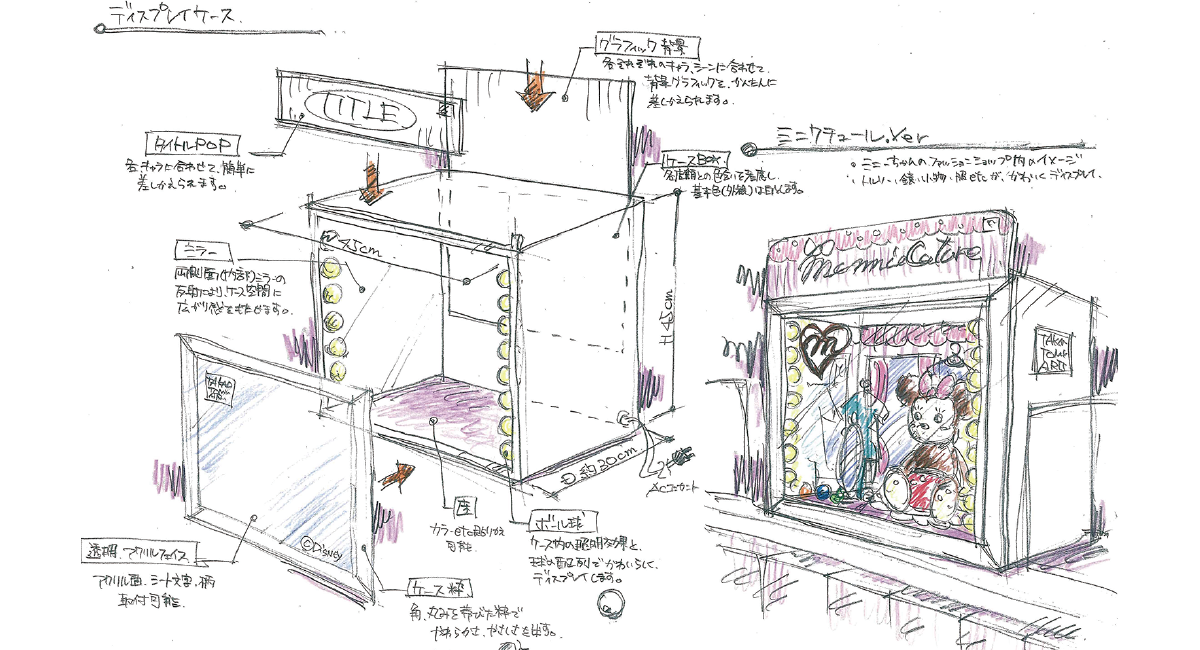 ディスプレイケース.
グラフィック背景
各それぞれのキャラ、シーンに合わせて、
背景グラフィックを、かんたんに
差しかえられます。
TITLE
タイトルPOP
各キャラに合わせて、簡単に
差しかえられます。
ケースBOX.
基本色(外観)は白とします。
ミニクチュール.Ver
・ミニーちゃんのファッションショップ内のイメージ
ミラー
両側面(内部)ミラーの
反射により、ケース空間に
広がり感をもたせます。
W45cm
H45cm
D約30cm
ACコンセント
座
カラーetc貼りかえ
可能.
ボール球
ケース内の照明効果と、
球の配列でかわいらしく、
ディスプレイします。
透明.アクリルフェイス
アクリル面、シート文字、柄
取付可能.
ケース枠
角、丸みを帯びた枠で
やわらかさ、やさしさを出す。
©Disney
MinnieCouture
M
TAKARA
TOMY
ARTS
TAKARA
TOMY
ARTS